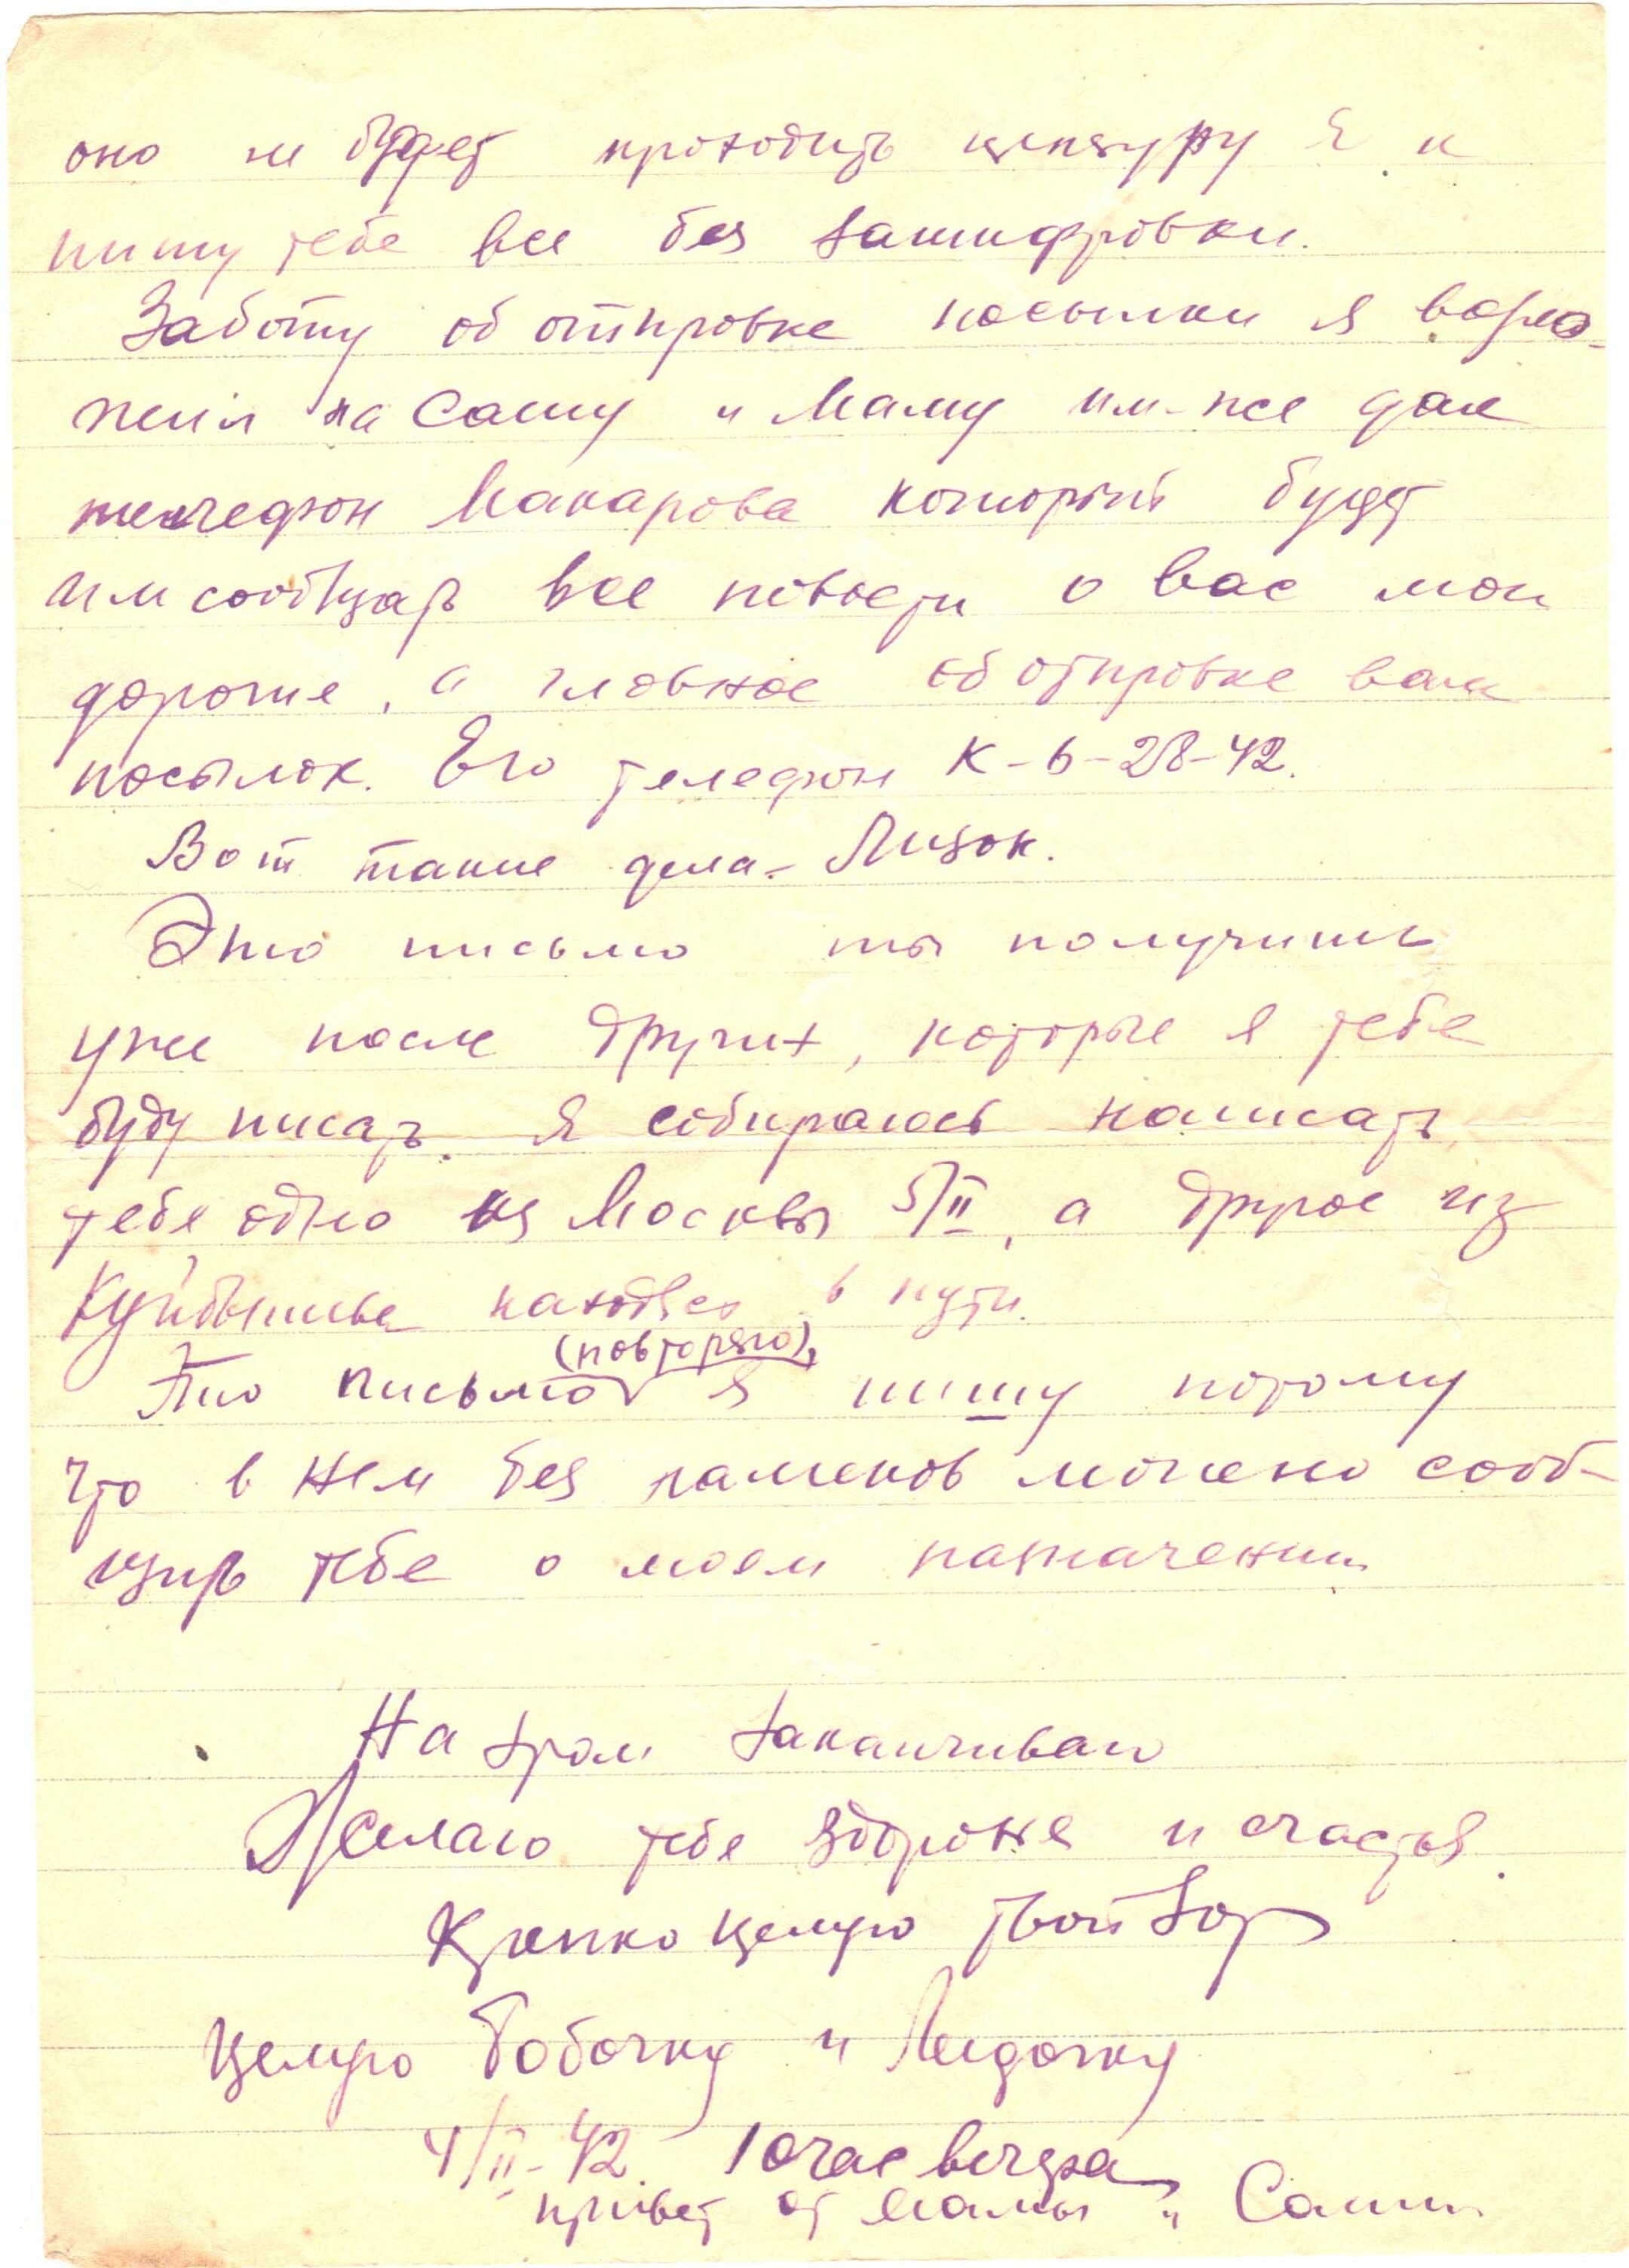 оно не будет проходить цензуру Я и
пишу тебе все без зашифровки.
Заботу об отправке посылки я возло-
жил на Сашу и Маму им-же дал
телефон Макарова который будет
им сообщать все новости о вас мои
дорогие, а главное об отправке вам
посылок. Его телефон К-6-28-42.
Вот такие дела- Лизок.
Это письмо ты получишь
уже после других, которые я тебе
буду писать. Я собираюсь написать
тебе одно из Москвы 5/II, а другое из
Куйбышева находясь в пути.
(повторяю),
Это письмо я пишу потому
что в нем без намеков можно сооб-
щить тебе о моем назначении
На этом заканчиваю
Желаю тебе здоровья и счастья.
Крепко целую твой
Целую Бобочку и Лидочку
4/II-42. 10 час вечера
привет от мамы и Саши